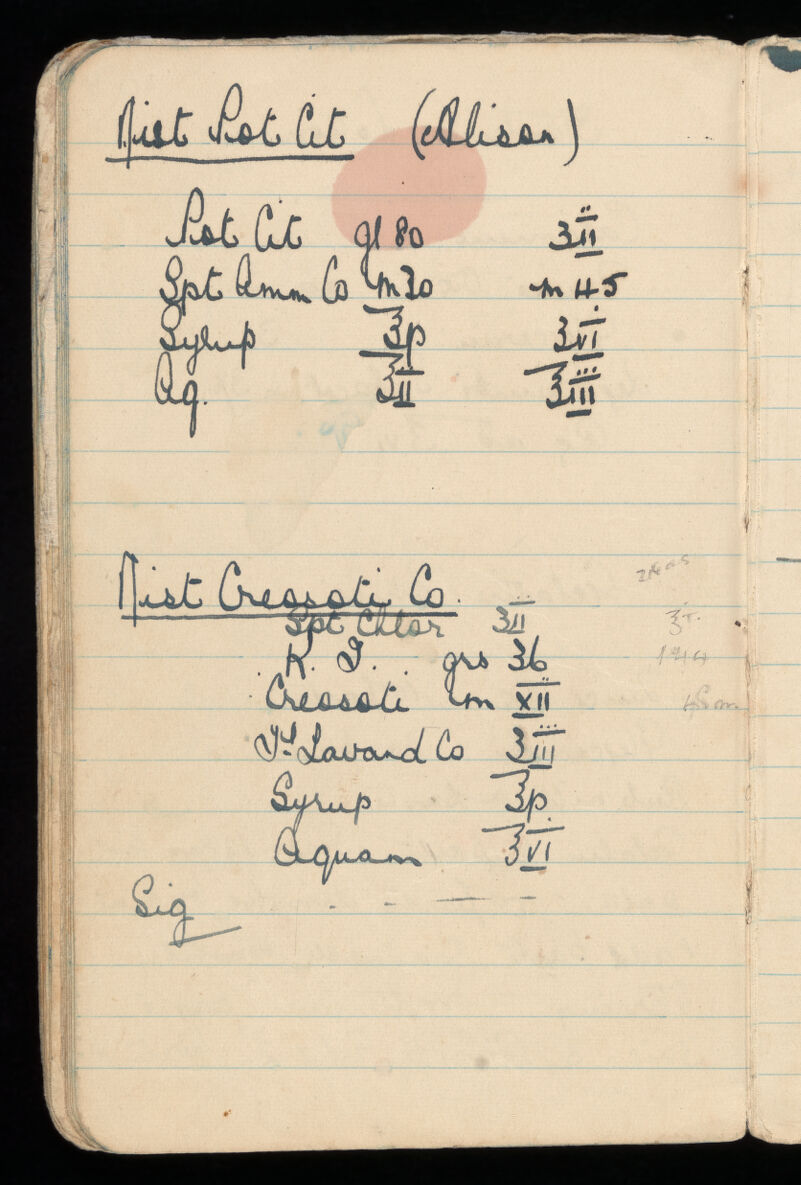 Mist Pot Cit (Alison)
Pot Cit gr 80 ʒii
Spt Amm Co m30 m 45
Syrup ℥p ʒvi
Aq. ℥ii ℥iii
Mist Creosoti Co.
Spt Chlor ʒii
K. I. grs 36
Creosoti m xii
Tr Lavand Co ʒiii
Syrup ℥p
Aquam ℥vi
Sig